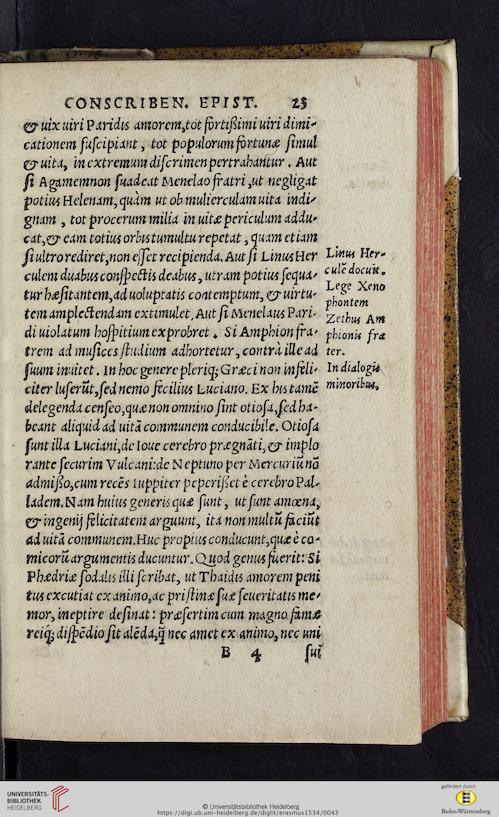 CONSCRIBEN. EPIST. 23
& uix uiri Paridis amorem, tot fortißimi uiri dimi-
cationem ſuſcipiant, tot populorum fortunæ ſimul
& uita, in extremum diſcrimen pertrahantur. Aut
ſi Agamemnon ſuadeat Menelao fratri, ut negligat
potius Helenam, quàm ut ob mulierculam uita indi-
gnam, tot procerum milia in uitæ periculum addu-
cat, & eam totius orbis tumultu repetat, quam etiam
ſi ultro rediret, non eſſet recipienda. Aut ſi Linus Her
culem duabus conſpectis deabus, utram potius ſequa-
tur hæſitantem, ad uoluptatis contemptum, & uirtu-
tem amplectendam extimulet, Aut ſi Menelaus Pari-
di uiolatum hoſpitium exprobret. Si Amphion fra-
trem ad muſices ſtudium adhortetur, contrà ille ad
ſuum inuitet. In hoc genere pleriq; Græci non infeli-
citer luſerũt, ſed nemo fœlicius Luciano. Ex his tamẽ
delegenda cenſeo, quæ non omnino ſint otioſa, ſed ha-
beant aliquid ad uitã communem conducibile. Otioſa
ſunt illa Luciani, de Ioue cerebro prægnãti, & implo
rante ſecurim Vulcani: de Neptuno per Mercuriũ nõ
admißo, cum recẽs Iuppiter peperißet è cerebro Pal-
ladem. Nam huius generis quæ ſunt, ut ſunt amœna,
& ingenij felicitatem arguunt, ita non multũ faciũt
ad uitã communem. Huc propius conducunt, quæ è co-
micorũ argumentis ducuntur. Quod genus fuerit: Si
Phædriæ ſodalis illi ſcribat, ut Thaidis amorem peni
tus excutiat ex animo, ac priſtinæ ſuæ ſeueritatis me-
mor, ineptire deſinat: præſertim cum magno famæ
reiq; diſpẽdio ſit alẽda, q̃ nec amet ex animo, nec uni
B 4 ſui
Linus Her-
culẽ docuit.
Lege Xeno
phontem
Zethus Am
phionis fra
ter.
In dialogis
minoribus.
UNIVERSITÄTS-
BIBLIOTHEK
HEIDELBERG
© Universitätsbibliothek Heidelberg
https://digi.ub.uni-heidelberg.de/diglit/erasmus1534/0043
gefördert durch
Baden-Württemberg